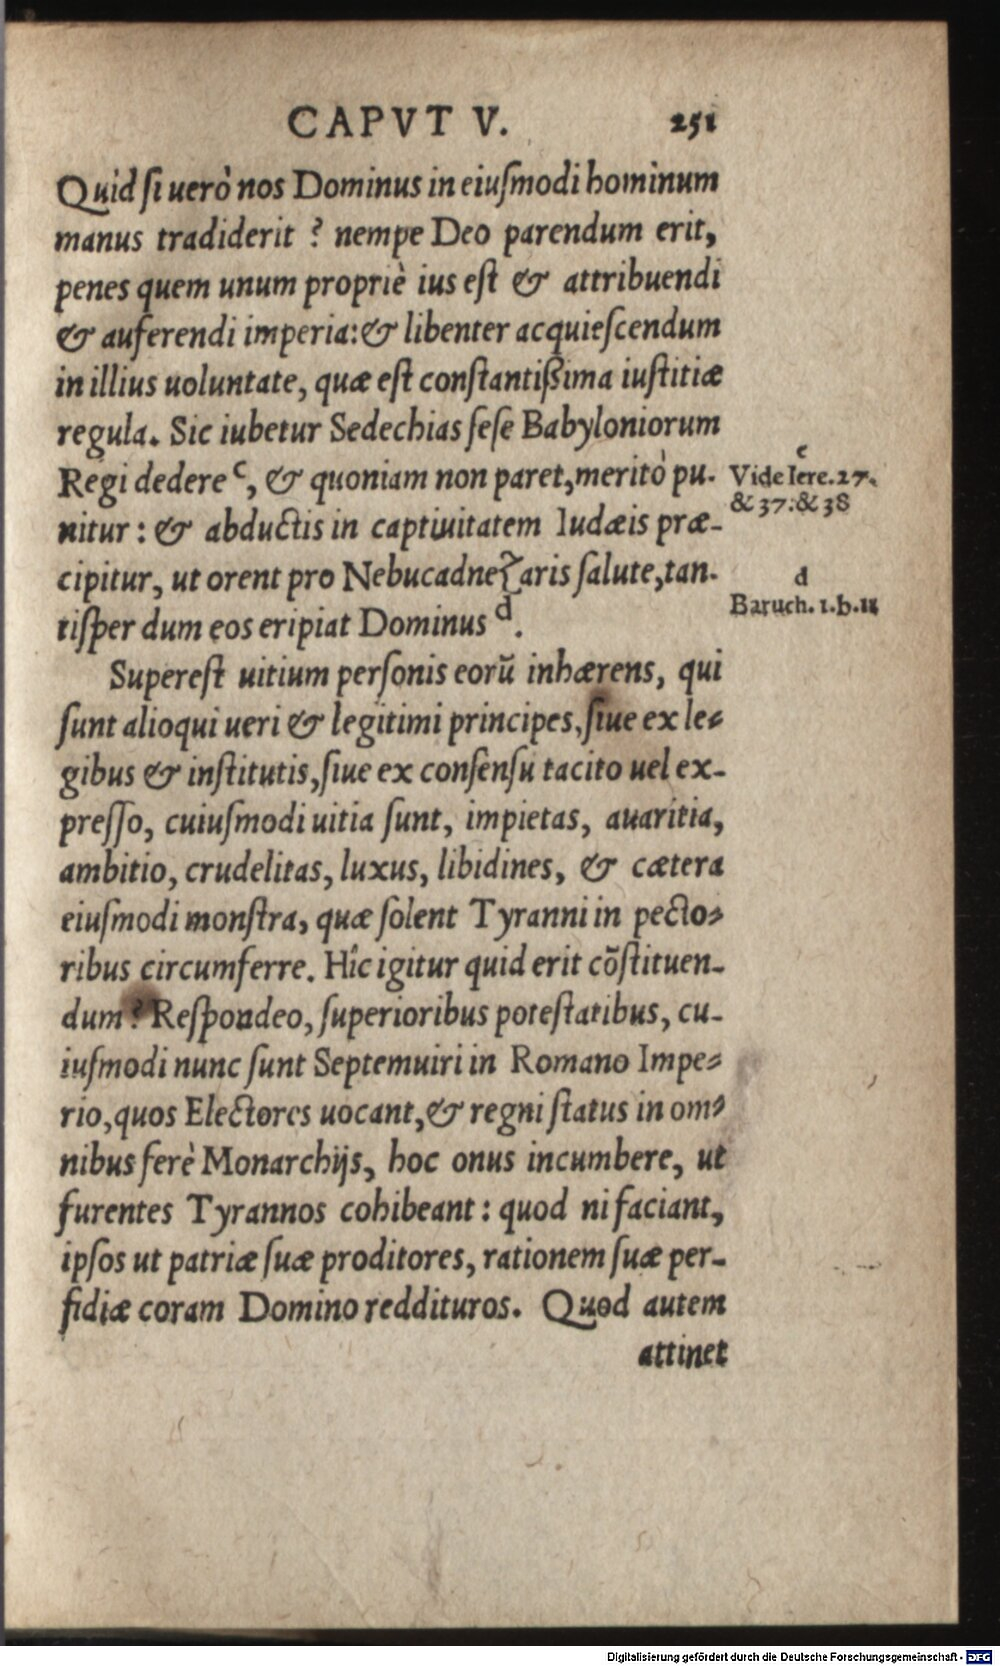 CAPVT V. 251
Quid ſi uerò nos Dominus in eiuſmodi hominum
manus tradiderit ? nempe Deo parendum erit,
penes quem unum propriè ius eſt & attribuendi
& auferendi imperia:& libenter acquieſcendum
in illius uoluntate, quæ eſt conſtantißima iuſtitiæ
regula. Sic iubetur Sedechias ſeſe Babyloniorum
Regi dedere c, & quoniam non paret,meritò pu-
nitur : & abductis in captiuitatem Iudæis præ-
cipitur, ut orent pro Nebucadnezaris ſalute,tan-
tiſper dum eos eripiat Dominus d.
c
Vide Iere.27.
& 37.& 38
d
Baruch. 1.b.11
Supereſt uitium perſonis eorũ inhærens, qui
ſunt alioqui ueri & legitimi principes,ſiue ex le-
gibus & inſtitutis,ſiue ex conſenſu tacito uel ex-
preſſo, cuiuſmodi uitia ſunt, impietas, auaritia,
ambitio, crudelitas, luxus, libidines, & cætera
eiuſmodi monſtra, quæ ſolent Tyranni in pecto-
ribus circumferre. Hîc igitur quid erit cõſtituen-
dum ? Reſpondeo, ſuperioribus poteſtatibus, cu-
iuſmodi nunc ſunt Septemuiri in Romano Impe-
rio,quos Electores uocant,& regni ſtatus in om-
nibus ferè Monarchijs, hoc onus incumbere, ut
furentes Tyrannos cohibeant : quod ni faciant,
ipſos ut patriæ ſuæ proditores, rationem ſuæ per-
fidiæ coram Domino reddituros. Quod autem
attinet
Digitalisierung gefördert durch die Deutsche Forschungsgemeinschaft - DFG